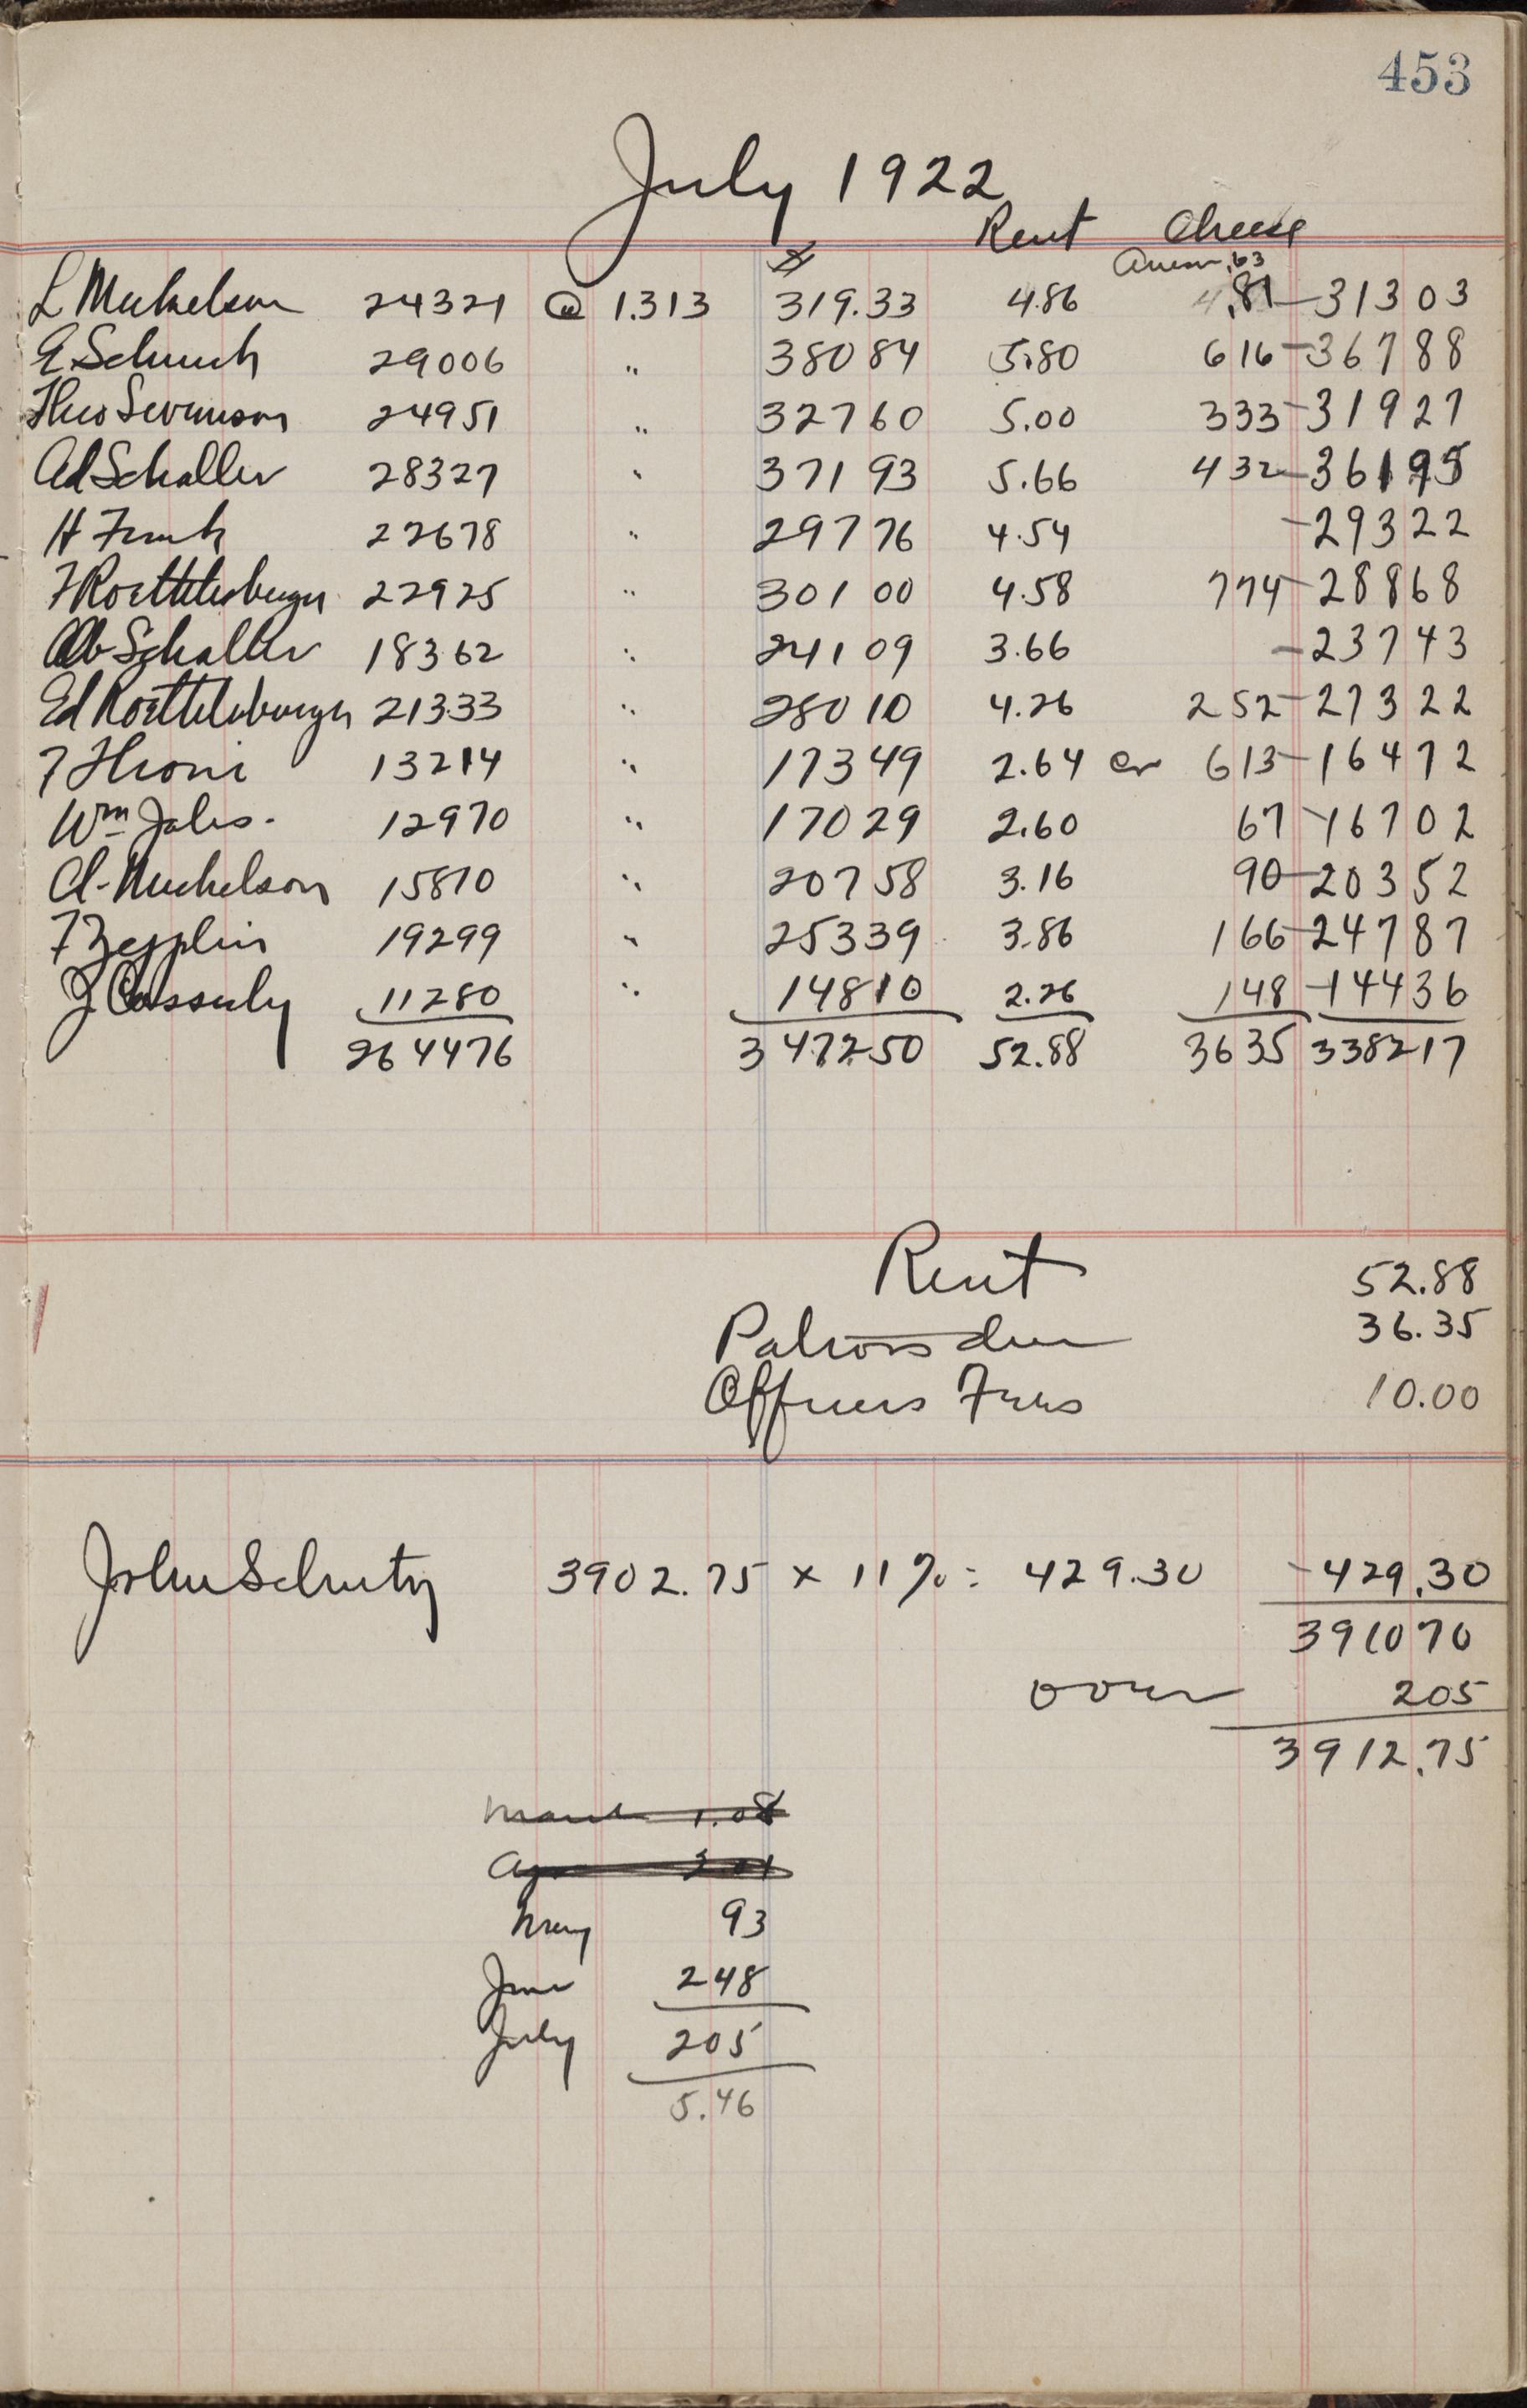 453
July 1922
Rent Cheese
L Mickelson 24321 @ 1.313 319.33 4.86 .81 - 31303
E Schuch 29006 " 38084 5.80 616 - 36788
Theo Sevenson 24951 " 32760 5.00 333 - 31927
Ad Schaller 28327 " 37193 5.66 432 - 36195
H Funk 22678 " 29776 4.54 - 29322
F Roethlisberger 22925 " 30100 4.58 774 - 28868
Alb Schaller 18362 " 24109 3.66 - 23743
Ed Roethlisberger 21333 " 28010 4.26 252 - 27322
F Hroni 13214 " 17349 2.64 cr 613 - 16472
Wm 12970 " 17029 2.60 67 - 16702
A. Mickelson 15810 " 20758 3.16 90 - 20352
F Zepplin 19299 " 25339 3.86 166 - 24787
J Cassidy 11280 " 14810 2.26 148 - 14436
264476 347250 52.88 3635 338217
Rent 52.88
Patrons due 36.35
Officers Fees 10.00
John Schutz 3902.75 x 11% = 429.30 - 429.30
391070
over 205
3912.75
March 1.08
Apr
May 93
June 248
July 205
5.46